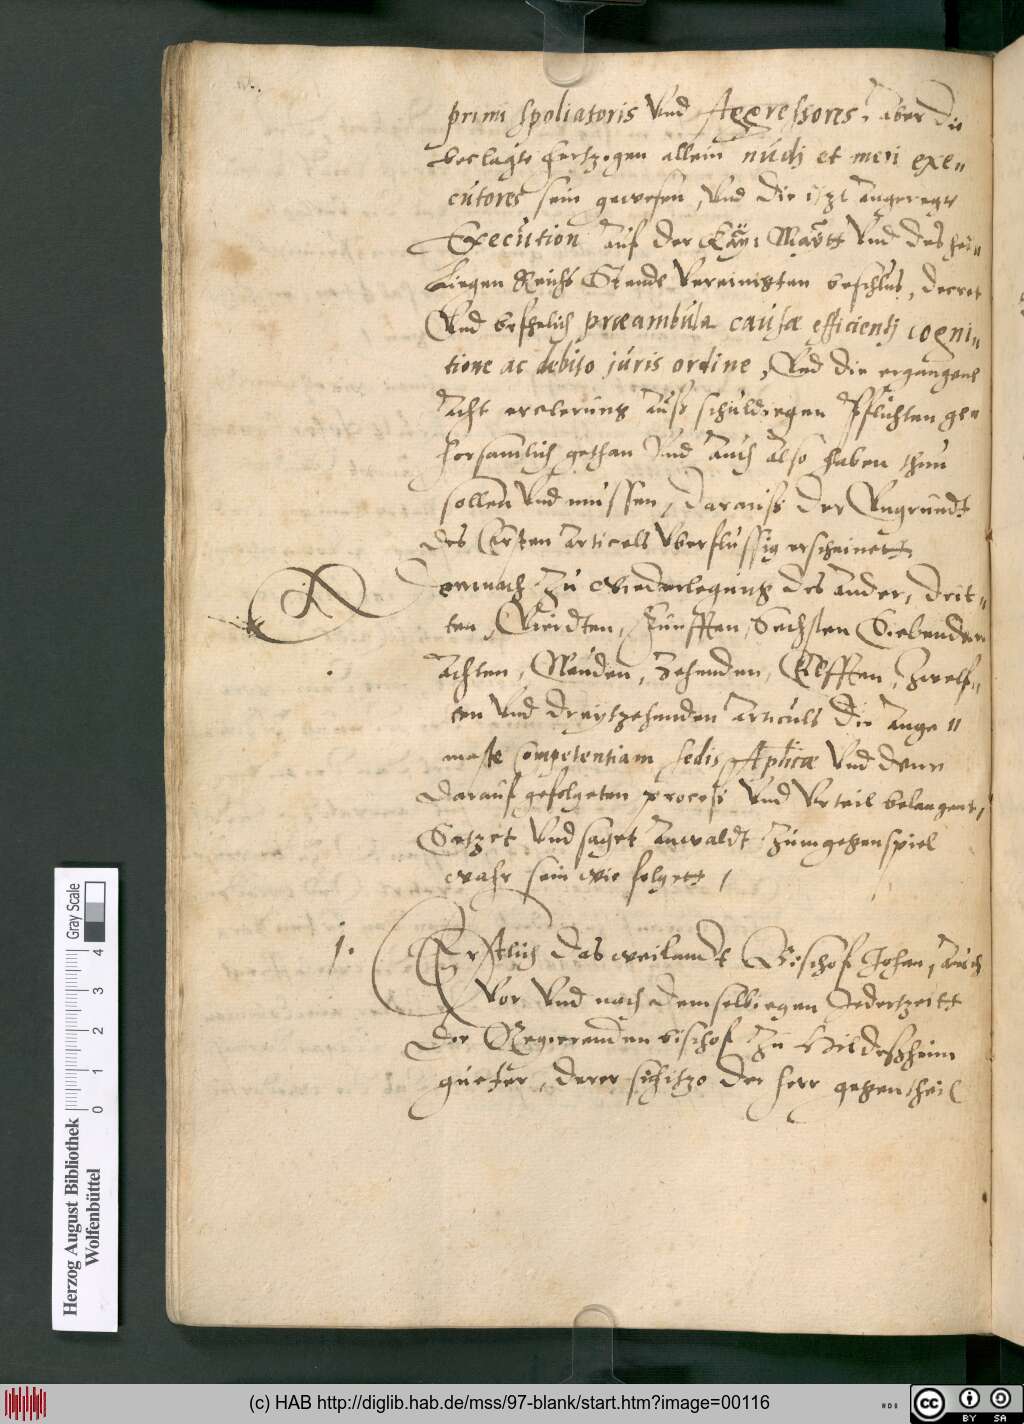 primi spoliatoris Vnd Aggressores, aber die
beclagte Hertzogen allein nudi et meri exe„
cutores sein gewesen, Vnd die itzt angeregte
Execution auf der Kay: Maytt Vnd des hei„
ligen Reichs Stende Vereinigten beschlus, decret
Vnd befhelich præambula causæ efficienti cogni„
tione ac debito juris ordine, Vnd die ergangene
Acht erclerung Auß schuldiegen Pflichten ge„
horsamlich gethan Vnd Auch Also haben thun
sollen Vnd mussen, darauß der Vngrundt
des Ersten Articels Vberflussig erscheinett
Demnach Zu Wiederlegung des Ander, drit„
ten, Vierdten, Fünfften, Sechsten Siebenden
Achten, Neunden, Zehenden, Elfften, Zwelf„
ten Vnd dreytzehenden Articuls die Ange„
maste Competentiam sedis Aplicæ Vnd denn
darauf gefolgeten proceß Vnd Vrteil belangent,
Setzet Vnd saget Anwaldt Zum gegenspiel
wahr sein wie folgett,
1.
Erstlich das weilandt Bischof Johan, Auch
Vor Vnd nach demselbiegen Jederzeitt
die Regierenden bischof Zu Hildeßheim
gueter, derer sich itzo der herr gegentheil
Herzog August Bibliothek
Wolfenbüttel
0 1 2 3 4
Gray Scale
(c) HAB http://diglib.hab.de/mss/97-blank/start.htm?image=00116
cc BY SA